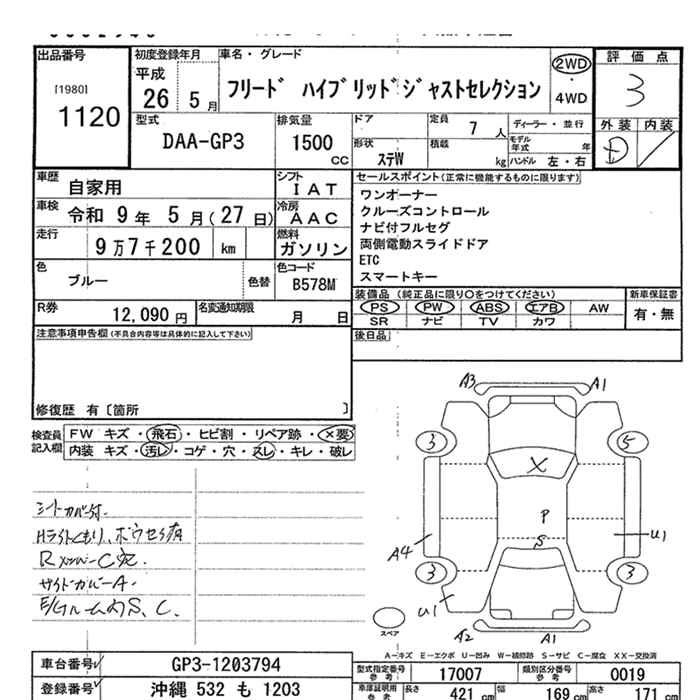 出品番号
[1980]
1120
初度登録年月
平成
26 5 月
車名・グレード
フリード ハイブリッドジャストセレクション
2WD
・
4WD
評価点
3
外装 内装
D
型式
DAA-GP3
排気量
1500
cc
ドア
形状
ステW
定員
7 人
積載
kg
ディーラー・並行
モデル年式 年
ハンドル 左・右
車歴
自家用
シフト
IAT
車検
令和 9 年 5 月(27 日)
冷房
AAC
走行
9 万 7 千 200 km
燃料
ガソリン
色
ブルー
色替
色コード
B578M
R券
12,090 円
名変通知期限
月 日
セールスポイント(正常に機能するものに限ります)
ワンオーナー
クルーズコントロール
ナビ付フルセグ
両側電動スライドドア
ETC
スマートキー
装備品 (純正品に限り○をつけてください)
PS PW ABS エアB AW
SR ナビ TV カワ
新車保証書
有・無
後日品
注意事項申告欄(不具合内容等は具体的に記入して下さい)
修復歴 有〔箇所 〕
検査員記入欄
FW キズ・飛石・ヒビ割・リペア跡・×要
内装 キズ・汚レ・コゲ・穴・スレ・キレ・破レ
シートカバー付.
Hライトくもり、ボウセイ有
サイドカバーA.
E/Gルーム内S、C.
A3
A1
3
5
X
P
S
A4
U1
3
3
U1
A2
A1
スペア
A−キズ E−エクボ U−凹み W−補修跡 S−サビ C−腐食 XX−交換済
車台番号
GP3-1203794
登録番号
沖縄 532 も 1203
型式指定番号
参考
17007
類別区分番号
参考
0019
車庫証明用
参考
長さ
421 cm
幅
169 cm
高さ
171 cm